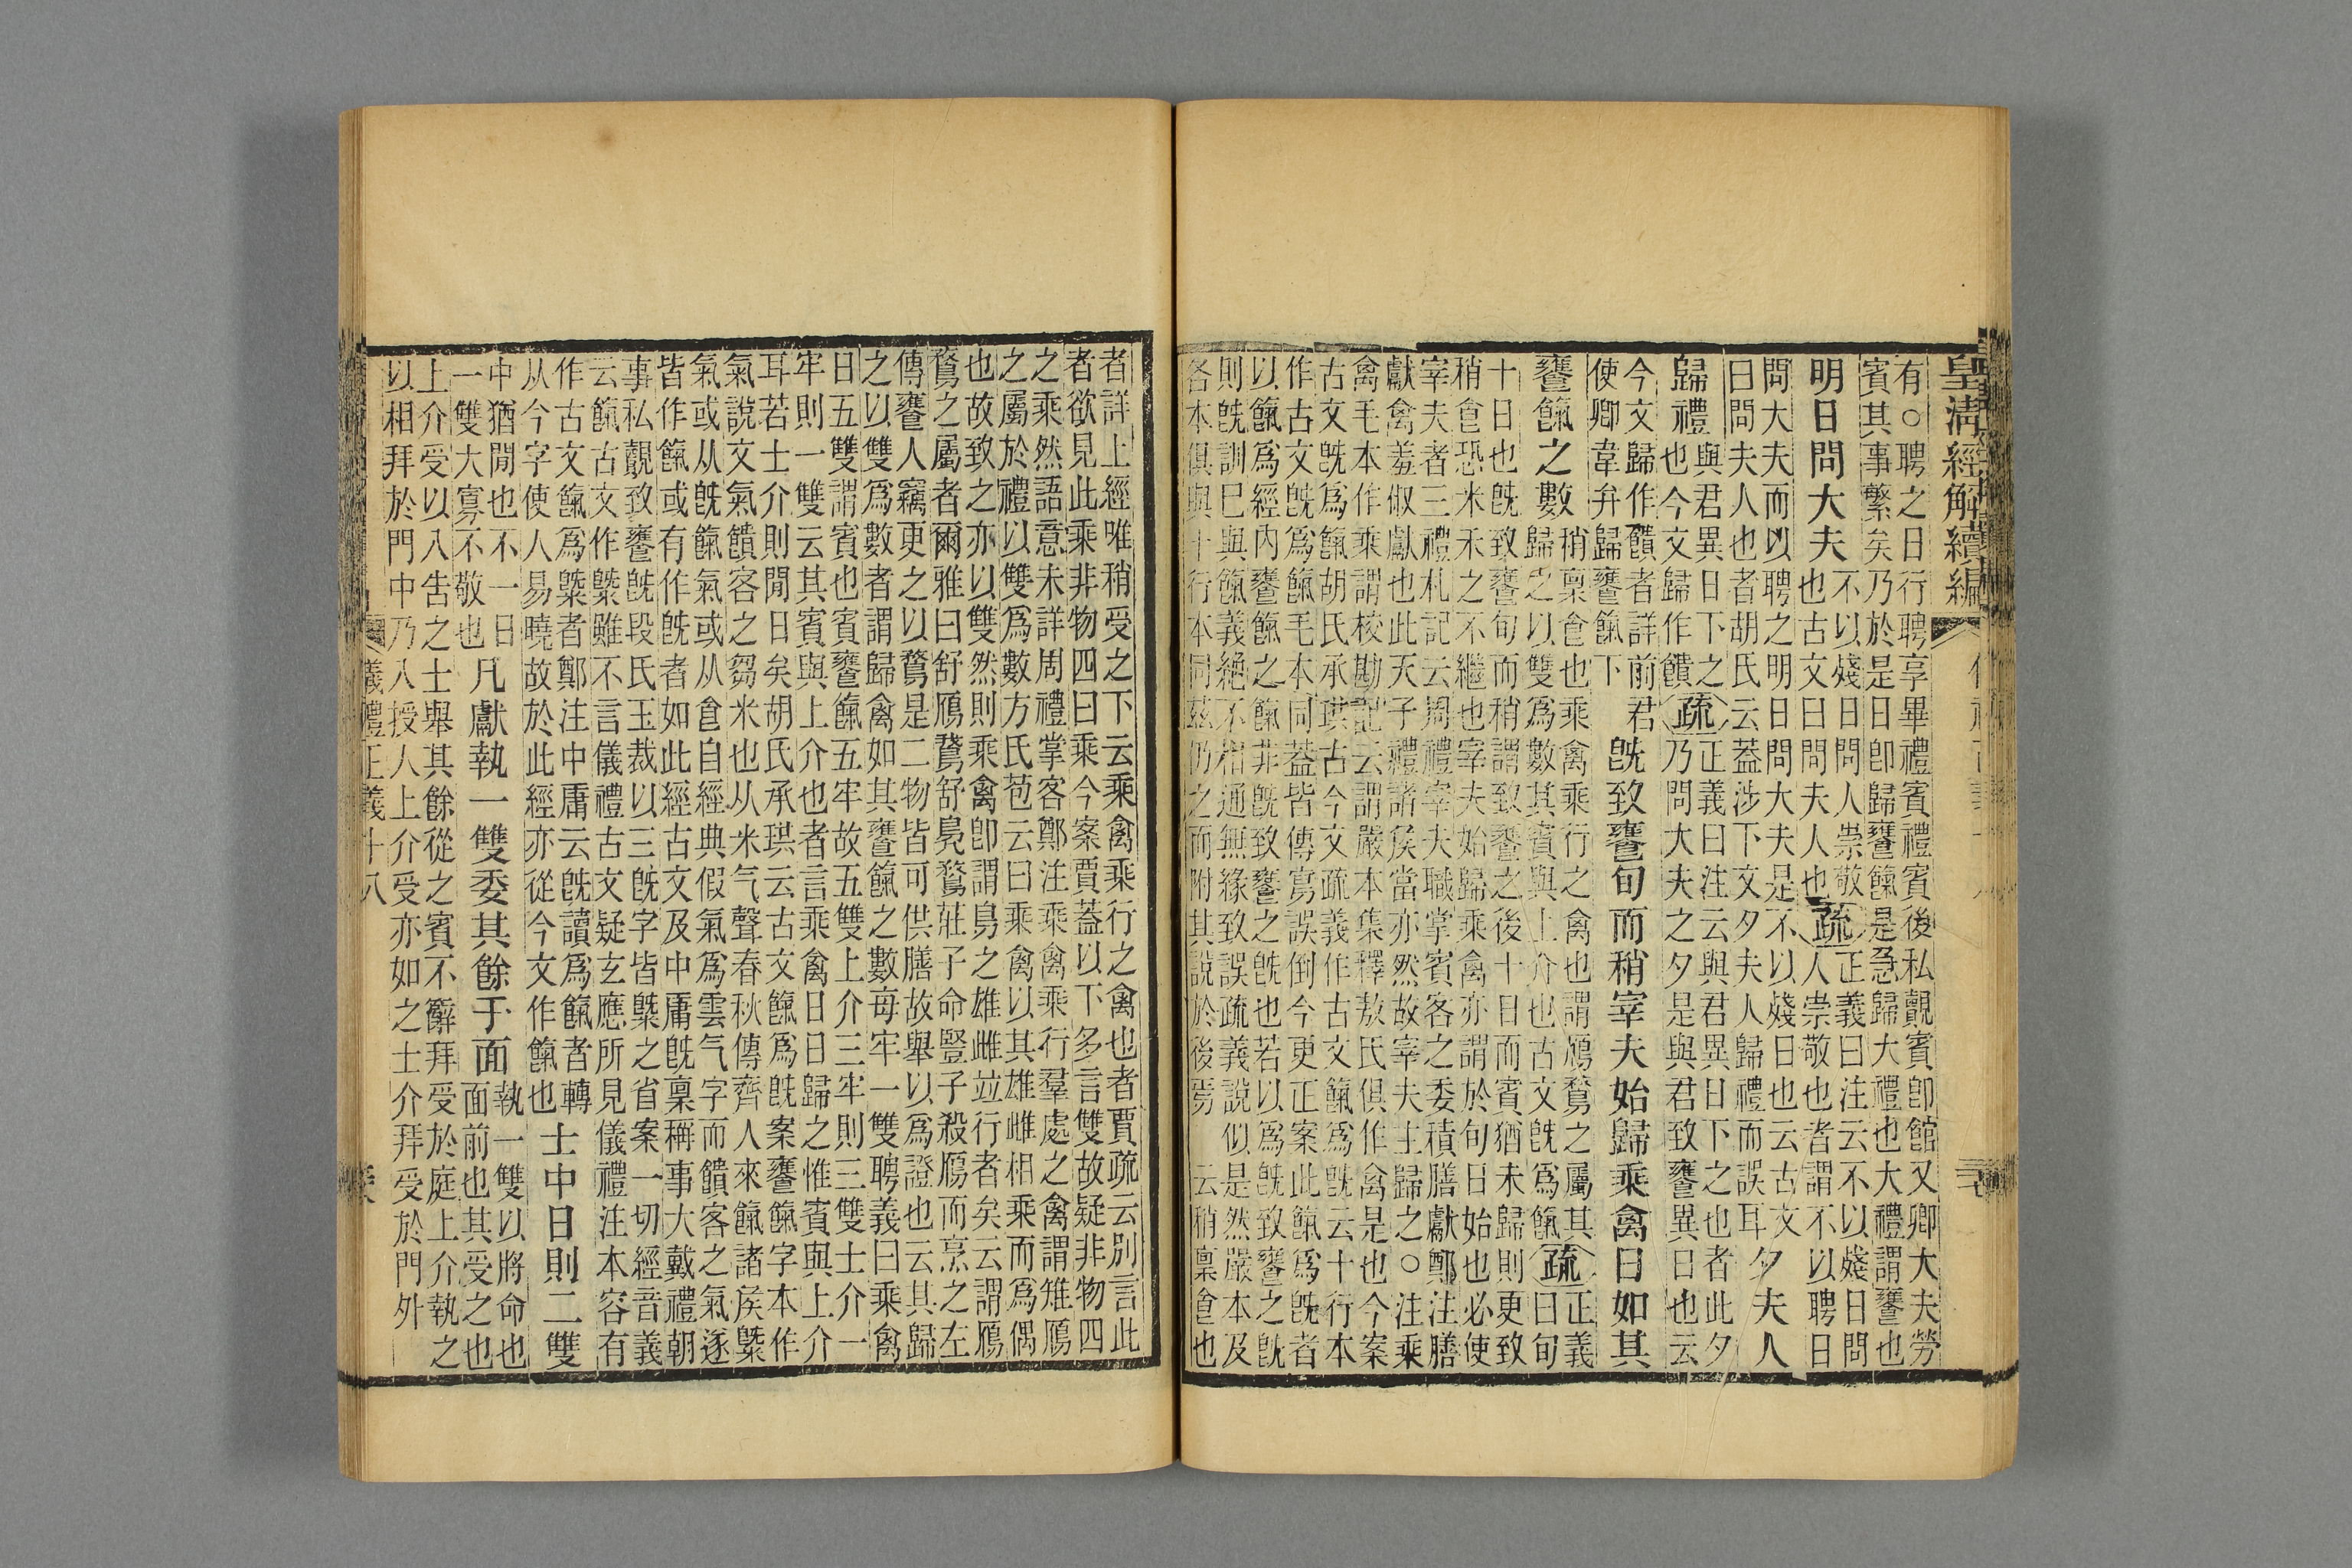 皇清經解續編
有○聘之日行聘享畢禮賓禮賓後私覿賓卽館又卿大夫勞
賓其事繁矣乃於是日卽歸饔餼是急歸大禮也大禮謂饔也
明日問大夫
不以殘日問人崇敬
也古文曰問夫人也
疏
正義曰注云不以殘日問
人崇敬也者謂不以聘日
問大夫而以聘之明日問大夫是不以殘日也云古文
曰問夫人也者胡氏云葢涉下文夕夫人歸禮而誤耳
夕夫人
歸禮
與君異日下之
也今文歸作饋
疏
正義曰注云與君異日下之也者此夕
乃問大夫之夕是與君致饔異日也云
今文歸作饋者詳前君
使卿韋弁歸饔餼下
旣致饔旬而稍宰夫始歸乘禽日如其
饔餼之數
稍稟食也乘禽乘行之禽也謂鴈鶩之屬其
歸之以雙爲數其賓與上介也古文旣爲餼
疏
正義
曰旬
十日也旣致饔旬而稍謂致饔之後十日而賓猶未歸則更致
稍食恐米禾之不繼也宰夫始歸乘禽亦謂於旬日始也必使
宰夫者三禮札記云周禮宰夫職掌賓客之委積膳獻鄭注膳
獻禽羞俶獻也此天子禮諸侯當亦然故宰夫主歸之○注乘
禽毛本作乘謂校勘記云謂嚴本集釋敖氏俱作禽是也今案
古文旣爲餼胡氏承珙古今文疏義作古文餼爲旣云十行本
作古文旣爲餼毛本同葢皆傳寫誤倒今更正案此餼爲旣者
以餼爲經內饔餼之餼非旣致饔之旣也若以爲旣致饔之旣
則旣訓已與餼義絶不相通無緣致誤疏義說似是然嚴本及
各本俱與十行本同茲仍之而附其說於後焉 云稍稟食也
者詳上經唯稍受之下云乘禽乘行之禽也者賈疏云別言此
者欲見此乘非物四曰乘今案賈葢以下多言雙故疑非物四
之乘然語意未詳周禮掌客鄭注乘禽乘行羣處之禽謂雉鴈
之屬於禮以雙爲數方氏苞云曰乘禽以其雄雌相乘而爲偶
也故致之亦以雙然則乘禽卽謂鳥之雄雌竝行者矣云謂鴈
鶩之屬者爾雅曰舒鴈鵞舒鳧鶩莊子命豎子殺鴈而烹之左
傳饔人竊更之以鶩是二物皆可供膳故舉以爲證也云其歸
之以雙爲數者謂歸禽如其饔餼之數每牢一雙聘義曰乘禽
日五雙謂賓也賓饔餼五牢故五雙上介三牢則三雙士介一
牢則一雙云其賓與上介也者言乘禽日日歸之惟賓與上介
耳若士介則閒日矣胡氏承珙云古文餼爲旣案饔餼字本作
氣說文氣饋客之芻米也从米气聲春秋傳齊人來餼諸侯槩
氣或从旣餼氣或从食自經典假氣爲雲气字而饋客之氣遂
皆作餼或有作旣者如此經古文及中庸旣稟稱事大戴禮朝
事私覿致饔旣段氏玉裁以三旣字皆槩之省案一切經音義
云餼古文作槩雖不言儀禮古文疑玄應所見儀禮注本容有
作古文餼爲槩者鄭注中庸云旣讀爲餼者轉
从今字使人易曉故於此經亦從今文作餼也
士中日則二雙
中猶閒也不一日
一雙大寡不敬也
凡獻執一雙委其餘于面
執一雙以將命也
面前也其受之也
上介受以入告之士舉其餘從之賓不辭拜受於庭上介執之
以相拜於門中乃入授人上介受亦如之士介拜受於門外
儀禮正義十八